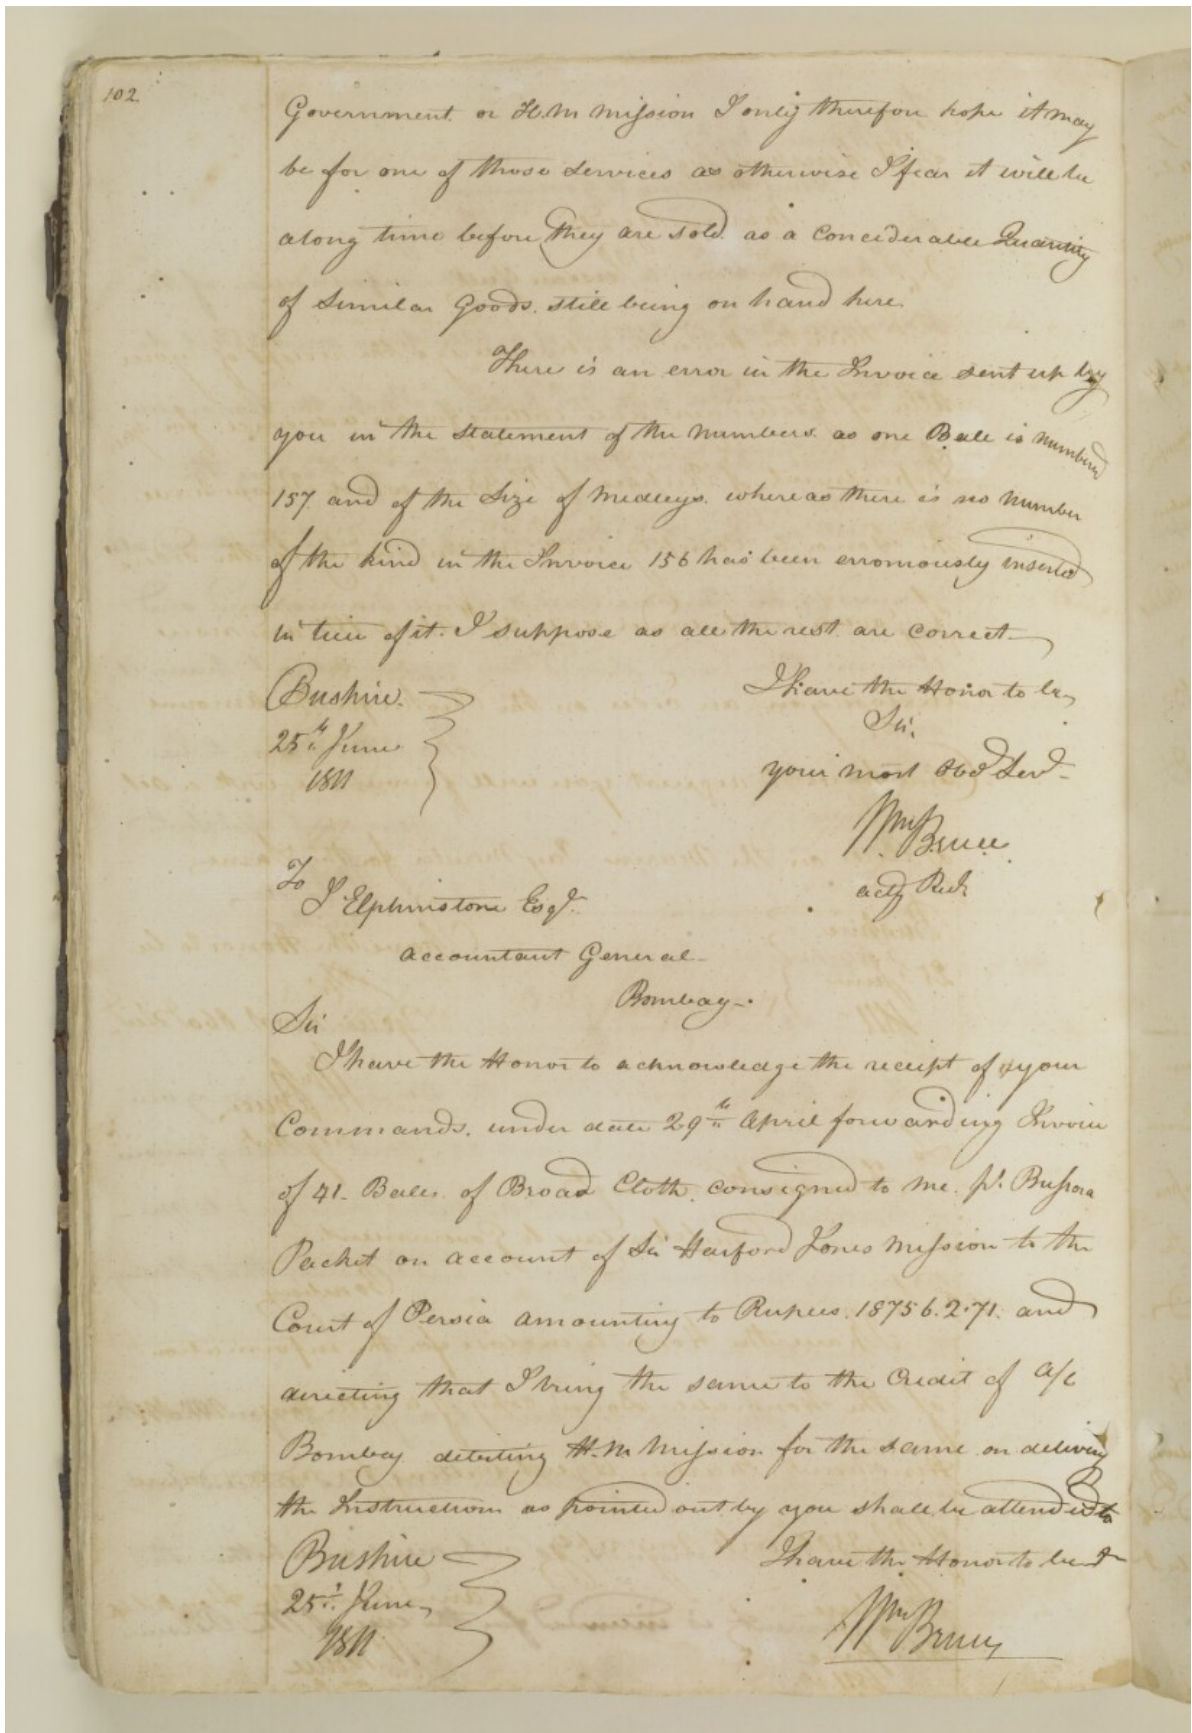 102.
Government or H.M Mission I only therefore hope it may
be for one of those Services as otherwise I fear it will be
along time before they are sold as a conciderable Quantity
of Similar Goods still being on hand here.
There is an error in the Invoice sent up by
you in the statement of the numbers as one Bale is numbered
157 and of the Size of medleys whereas there is no number
of the kind in the Invoice 156 has been erroniously inserted
in lieu of it. I suppose as all the rest are correct
I have the Honor to be
Bushire.
Sir,
25th June
your most Obd. Servt.
1811
Wm Bruce
actg Rest
To
J Elphinstone Esqr.
Accountant General
Bombay.
Sir
I have the Honor to acknowledge the receipt of your
Commands under date 29th April forwarding Invoice
of 41. Bales of Broad Cloth consigned to me Pr. Bussora
Packet on account of Sir Harford Jones Mission to the
Court of Persia amounting to Rupees 18756.2.71. and
directing that I bring the same to the Credit of a/c
Bombay debiting H.M Mission for the same on delivery
the Instructions as pointed out by you shall be attended to
Bushire
I have the Honor to be &
25th June
1811
Wm Bruce